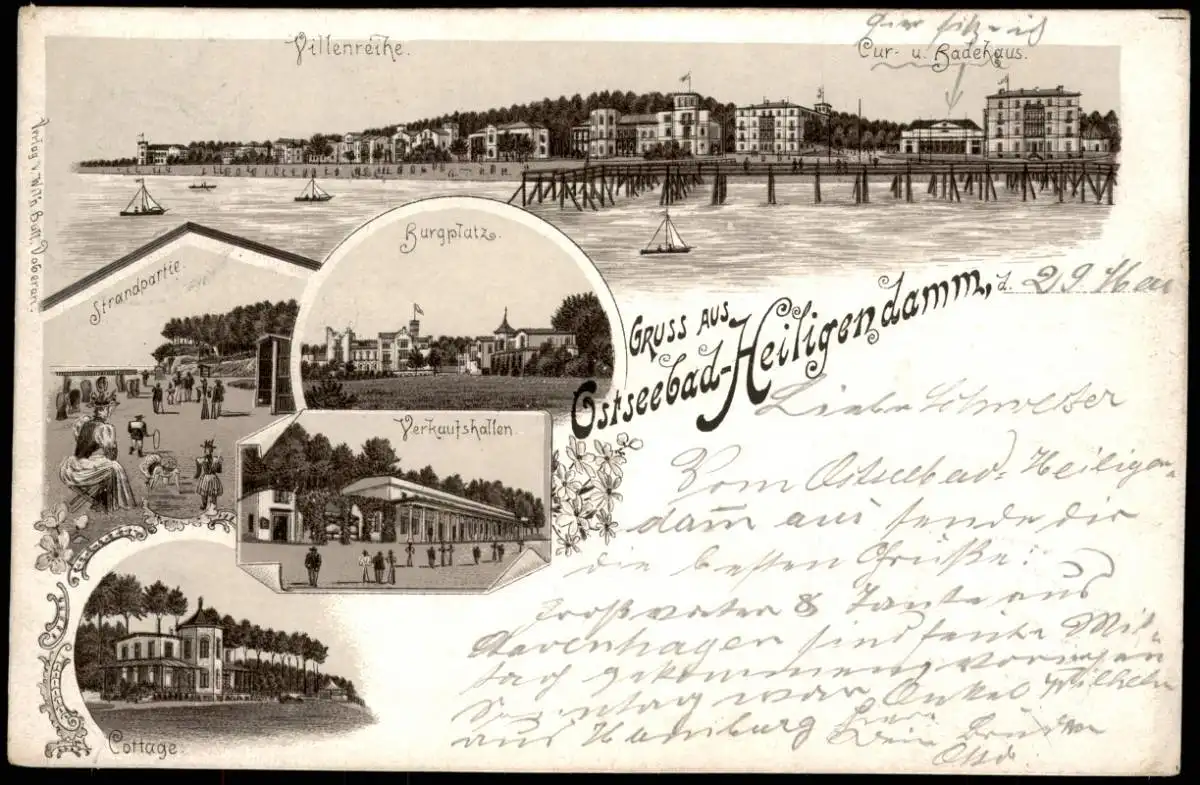 hier sitz ich
Villenreihe.
Cur- u. Badehaus.
Verlag v. Wilh. Doberan.
Strandpartie.
Burgplatz.
Gruss aus
Ostseebad-Heiligendamm, d. 29 Mai
Verkaufshallen.
Cottage.
Liebe Schwester
Vom Ostseebad-Heiligen-
damm aus sende dir
die besten Grüße.
Großvater & Tante aus
Stavenhagen sind heute Mit-
tag gekommen, vorigen
Sonntag war Onkel Wilhelm
aus Hamburg hier.
Dein Bruder
Otto.